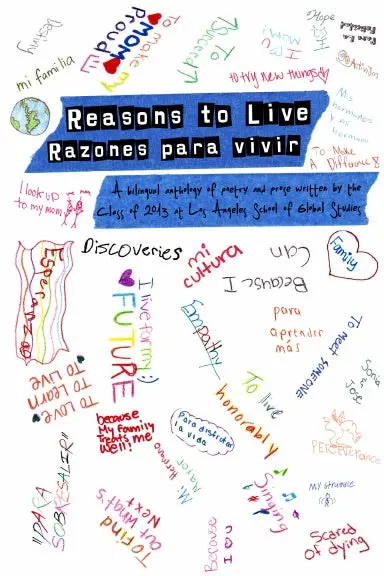 Destiny
To make my
MOM
Proud
To
Succeed
I
U
Hope
mi familia
to try new things
Reasons to Live
Razones para vivir
Mis
hermanos
y mi
To Make
A Difference
A bilingual anthology of poetry and prose written by the
Class of 2013 at Los Angeles School of Global Studies
I look up
to my mom
DiSCOVeries
mi
cultura
Because I
Can
Family
Esperanza
I live for my
FUTURE
para
aprender
más
To MEET SOMEONE
To Love
To Learn
To Live
because
My Family
Treats me
Well!
To live
honorably
Para disfrutar
la vida
Mi
Mayor
Hermano
PERSEVERANCE
"PARA
SOBRESALIR"
To find
out what's
Next
Because
I U
Singing
My struggle
Scared
of dying